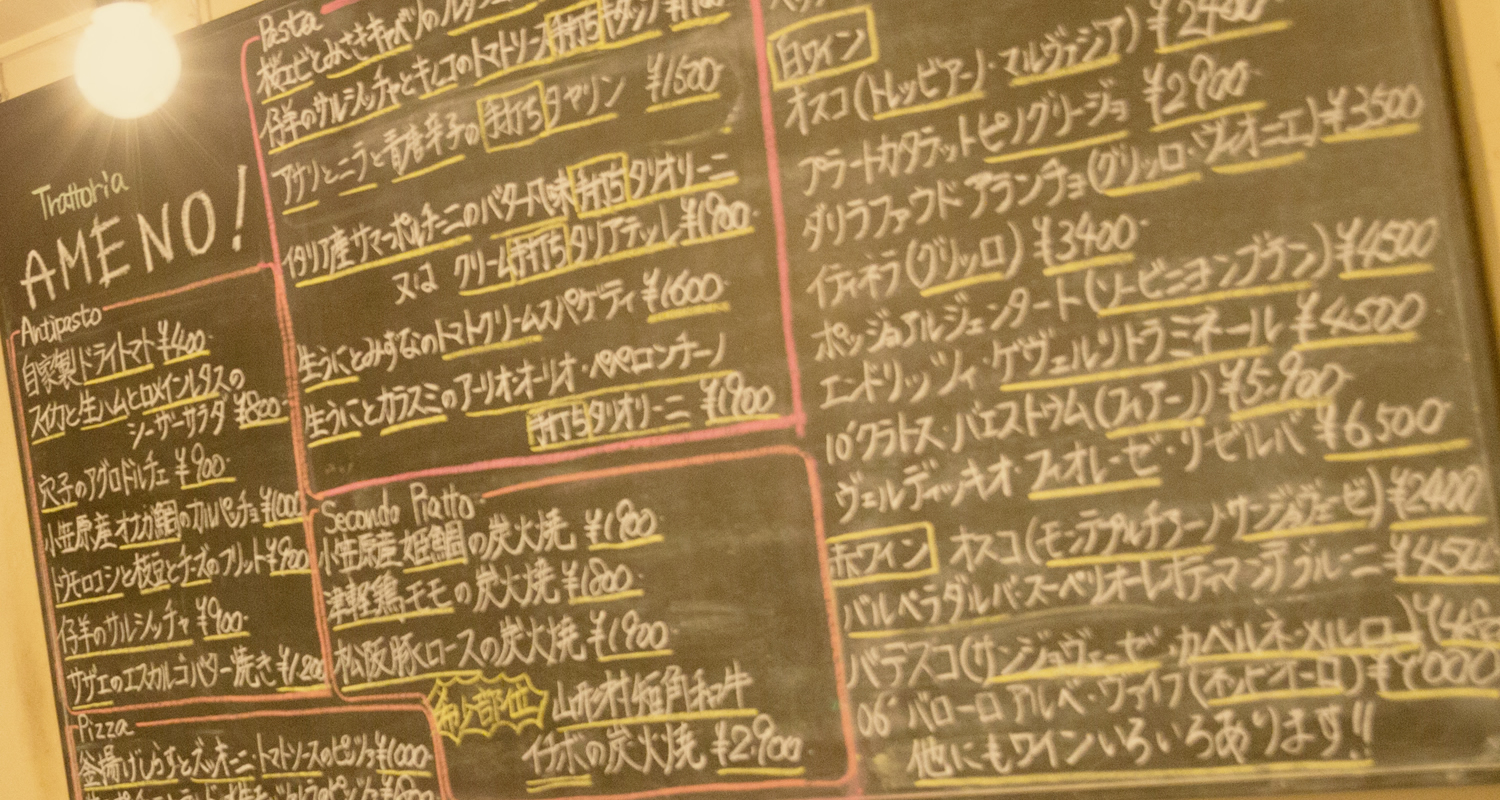 Trattoria
AMENO!
Antipasto
自家製ドライトマト ¥400
スイカと生ハムとロメインレタスの
シーザーサラダ ¥800
穴子のアグロドルチェ ¥900
小笠原産オナガ鯛のカルパッチョ ¥1000
トウモロコシと枝豆とチーズのフリット ¥900
仔羊のサルシッチャ ¥900
サザエのエスカルゴバター焼き ¥1,200
Pizza
釜揚げしらすとズッキーニ・トマトソースのピッツァ ¥1000
Pasta
桜エビとみさきキャベツの
仔羊のサルシッチャとキノコのトマトソース手打ち
アサリとニラと青唐辛子の手打ちタヤリン ¥1500
イタリア産サマーポルチーニのバター風味手打ちタリオリーニ
又は クリーム手打ちタリアテッレ ¥1900
生うにとみずなのトマトクリームスパゲティ ¥1600
生うにとカラスミのアーリオ・オーリオ・ペペロンチーノ
手打ちタリオリーニ ¥1900
Secondo Piatto
小笠原産姫鯛の炭火焼 ¥1900
津軽鶏モモの炭火焼 ¥1800
松阪豚ロースの炭火焼 ¥1900
希少部位 山形村短角和牛
イチボの炭火焼 ¥2,900
¥2400
白ワイン
オスコ(トレッビアーノ・マルヴァジア) ¥2400
アラートカタラットピノグリージョ ¥2900
ダリラファウド アランチョ(グリッロ・ヴィオニエ) ¥3500
イティネラ(グリッロ) ¥3400
ポッジョアルジェンタート(ソービニヨンブラン) ¥4500
エンドリッツィ・ゲヴェルツトラミネール ¥4500
10'クラトス・パエストゥム(フィアーノ) ¥5,900
ヴェルディッキオ・フィオレーゼ・リゼルバ ¥6500
赤ワイン オスコ(モンテプルチアーノ サンジョヴェーゼ) ¥2400
バルベラダルバ・スーペリオーレ ¥4500
バデスコ(サンジョヴェーゼ・カベルネ・メルロー)
06' バローロ アルベ・ヴァイラ(ネッビオーロ)
他にもワインいろいろあります!!